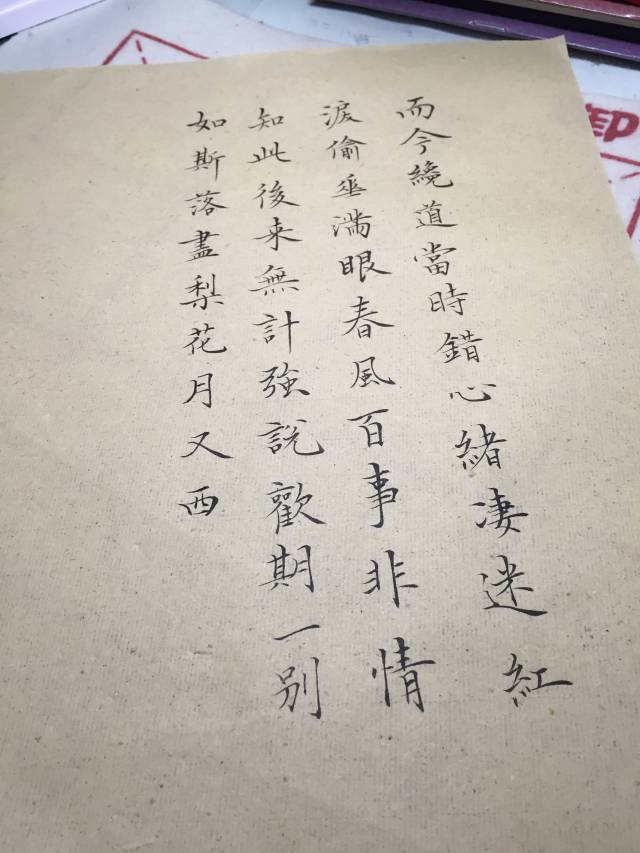 而今纔道當時錯心緒淒迷紅
淚偷垂滿眼春風百事非情
知此後來無計強說歡期一別
如斯落盡梨花月又西
御